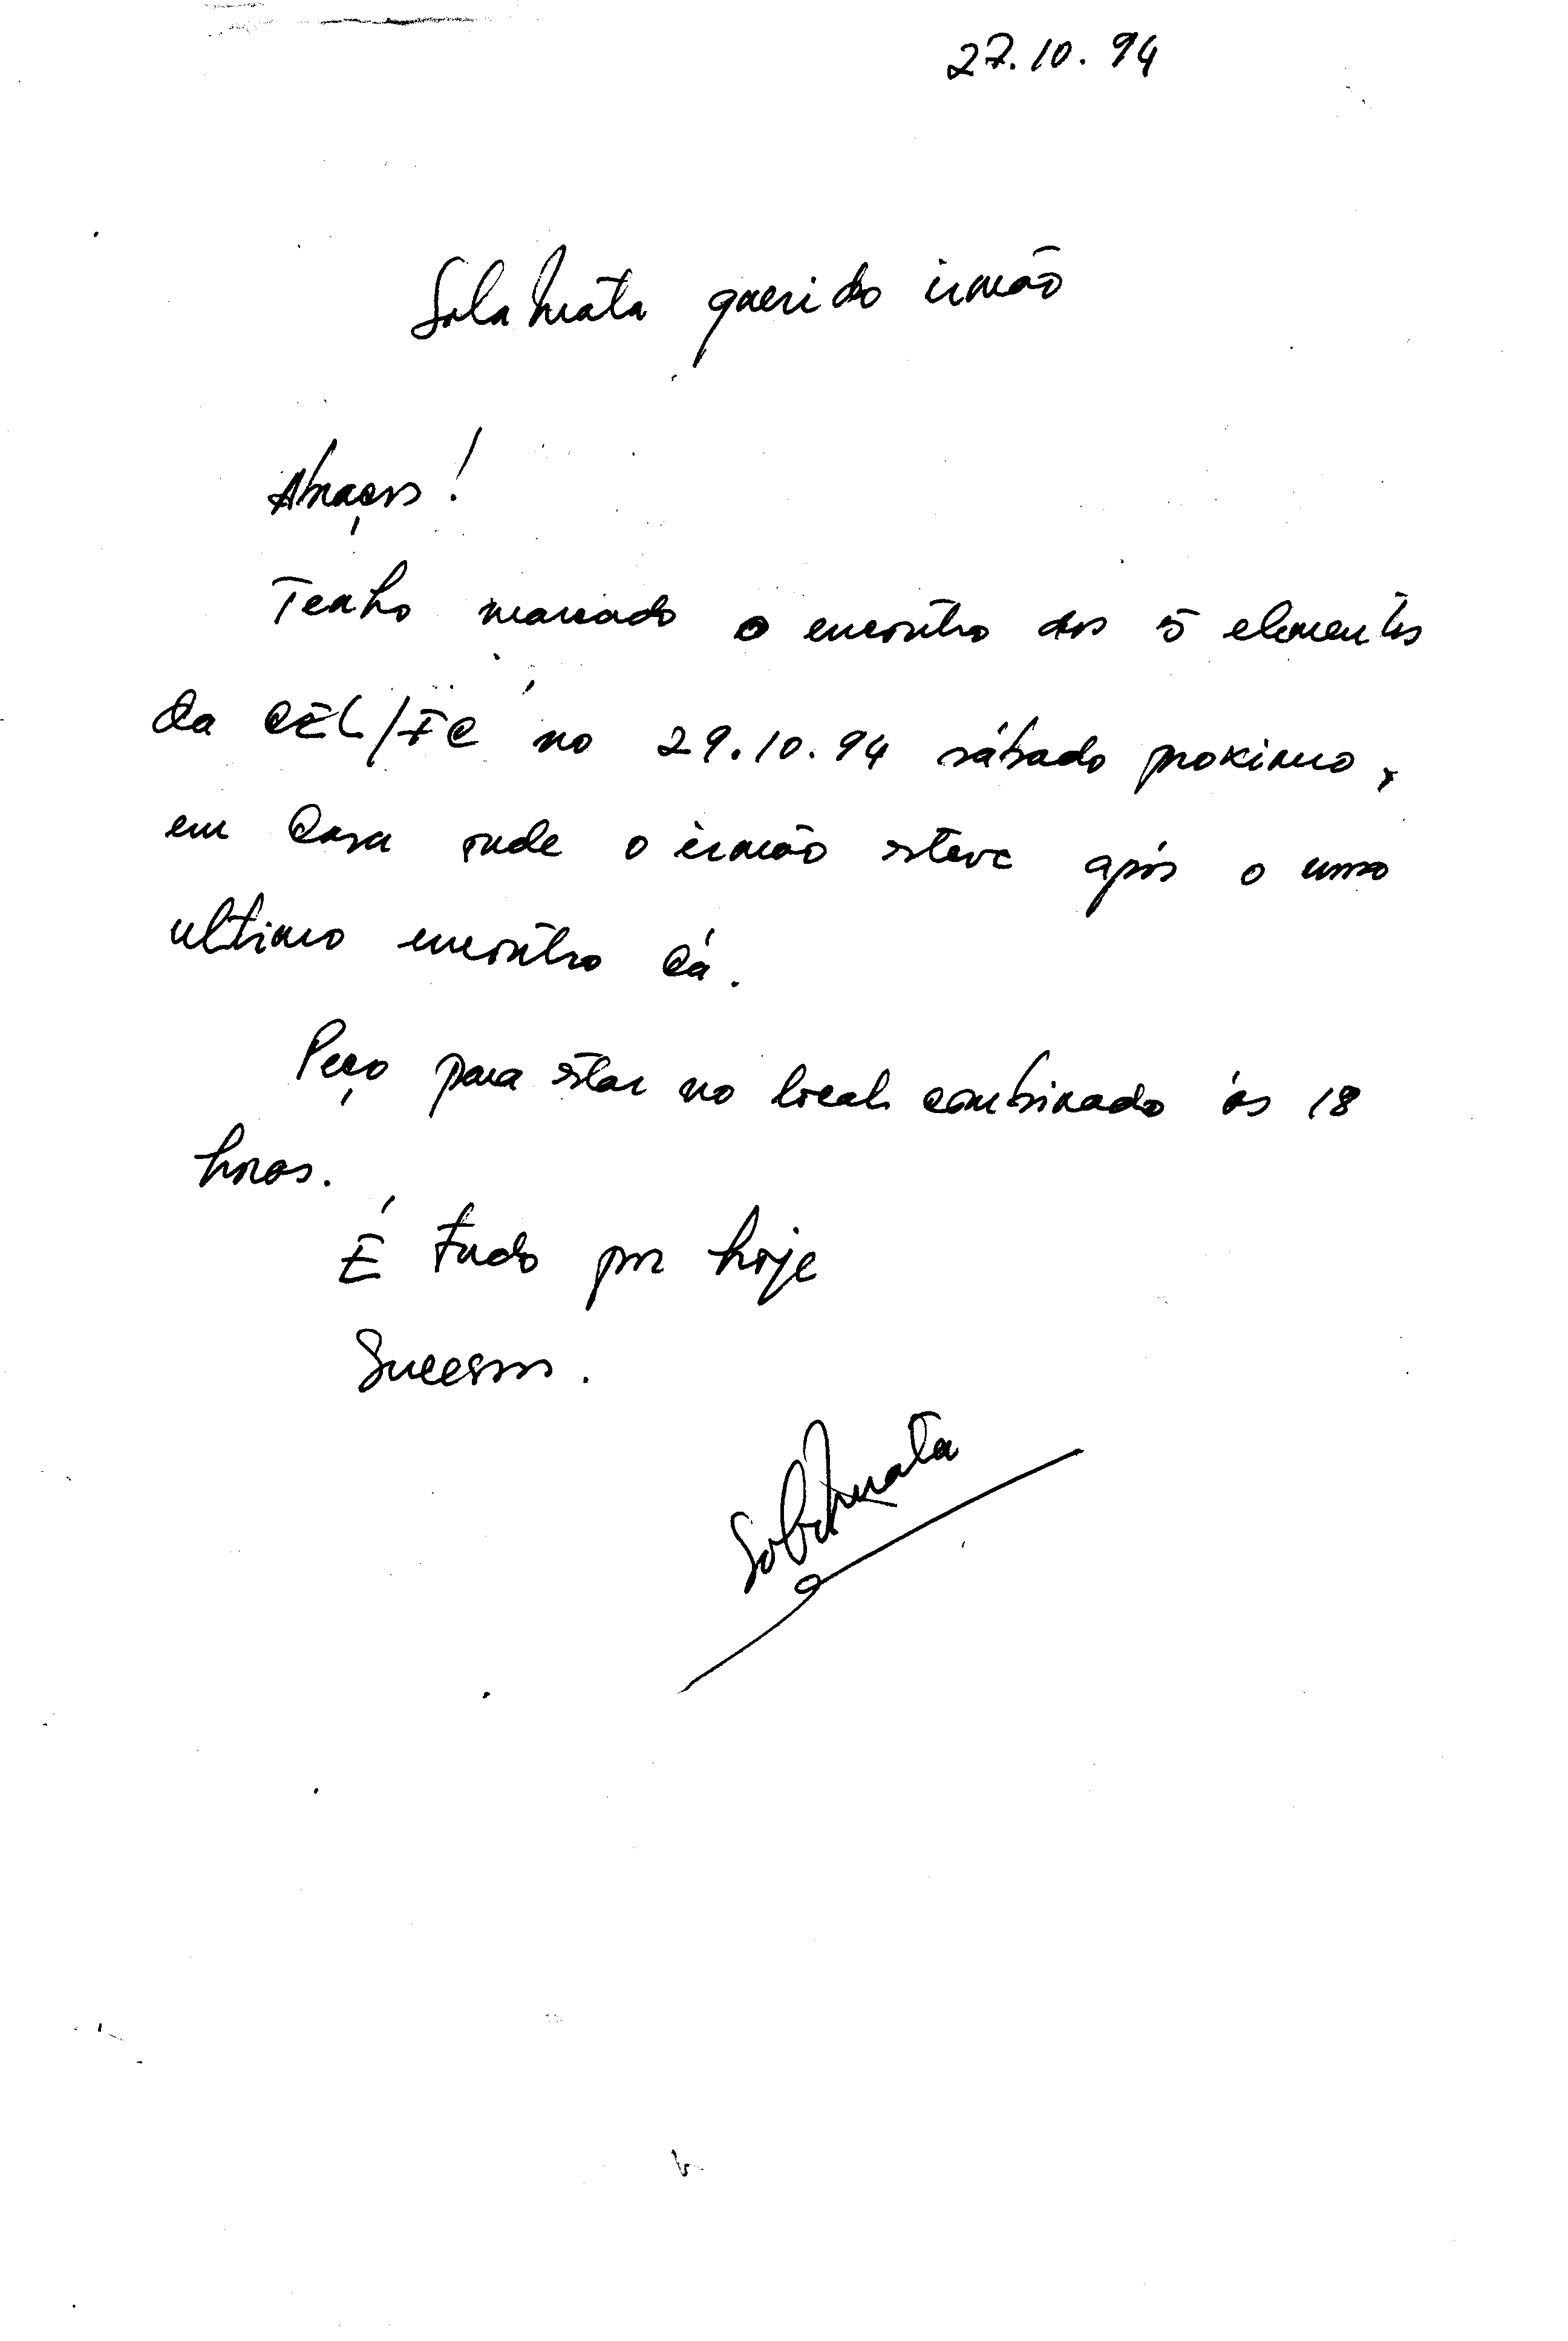 27.10.94
Sola Mata querido irmão
Abraços!
Tenho marcado o encontro dos 5 elementos
da CEL/FC no 29.10.94 sábado proximo,
em Casa onde o irmão esteve após o nosso
ultimo encontro cá.
Peço para estar no local combinado ás 18
horas.
É tudo por hoje
Sucessos.